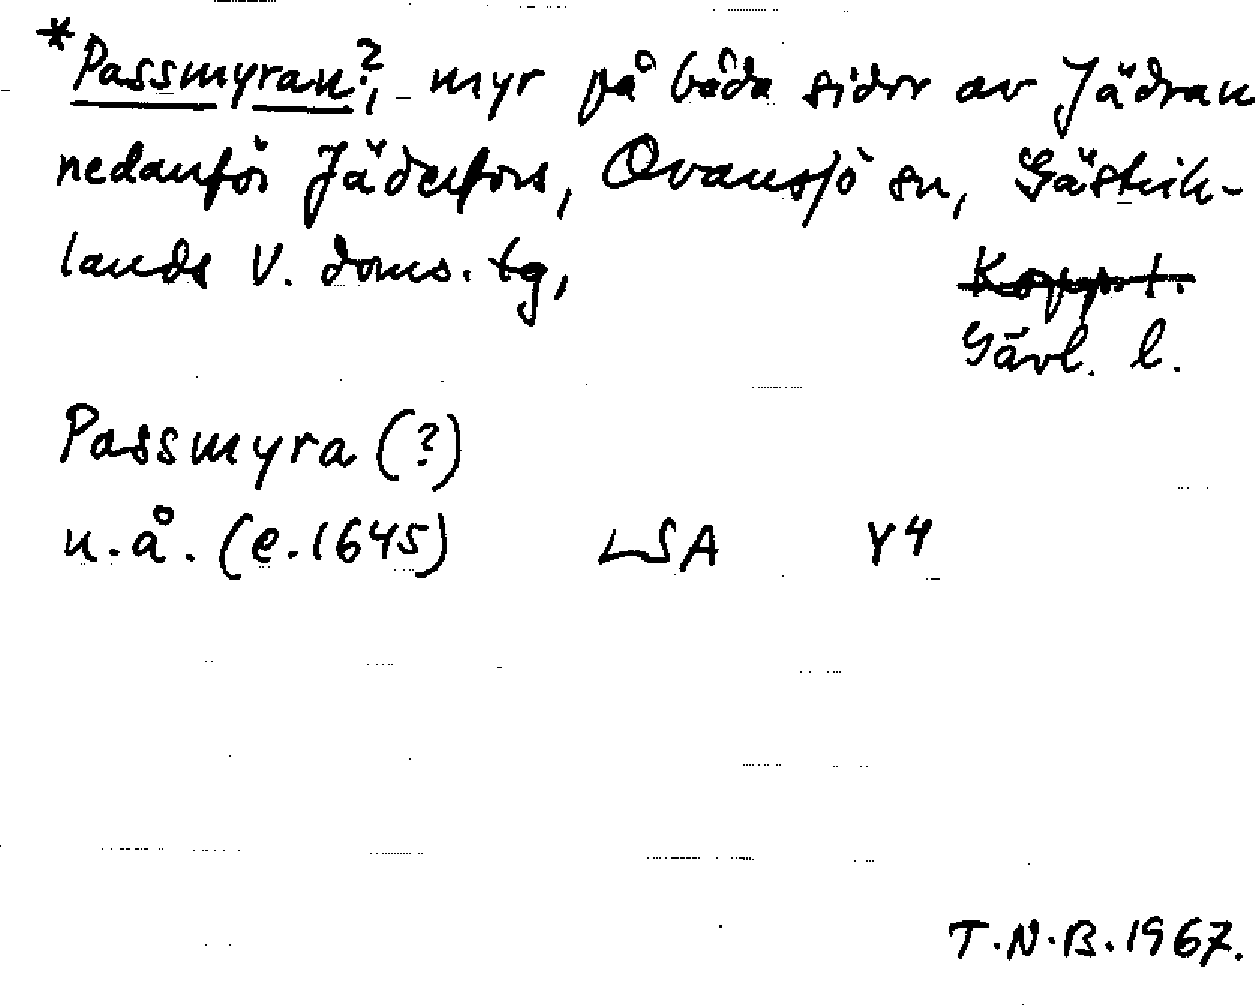 *Passmyran?, myr på båda sidor av Jädran
nedanför Jäderfors, Ovansjö sn, Gästrik-
lands V. doms. tg,
Kopp. l.
Gävl. l.
Passmyra (?)
u.å. (e.1645) LSA Y4
T.N.B.1967.